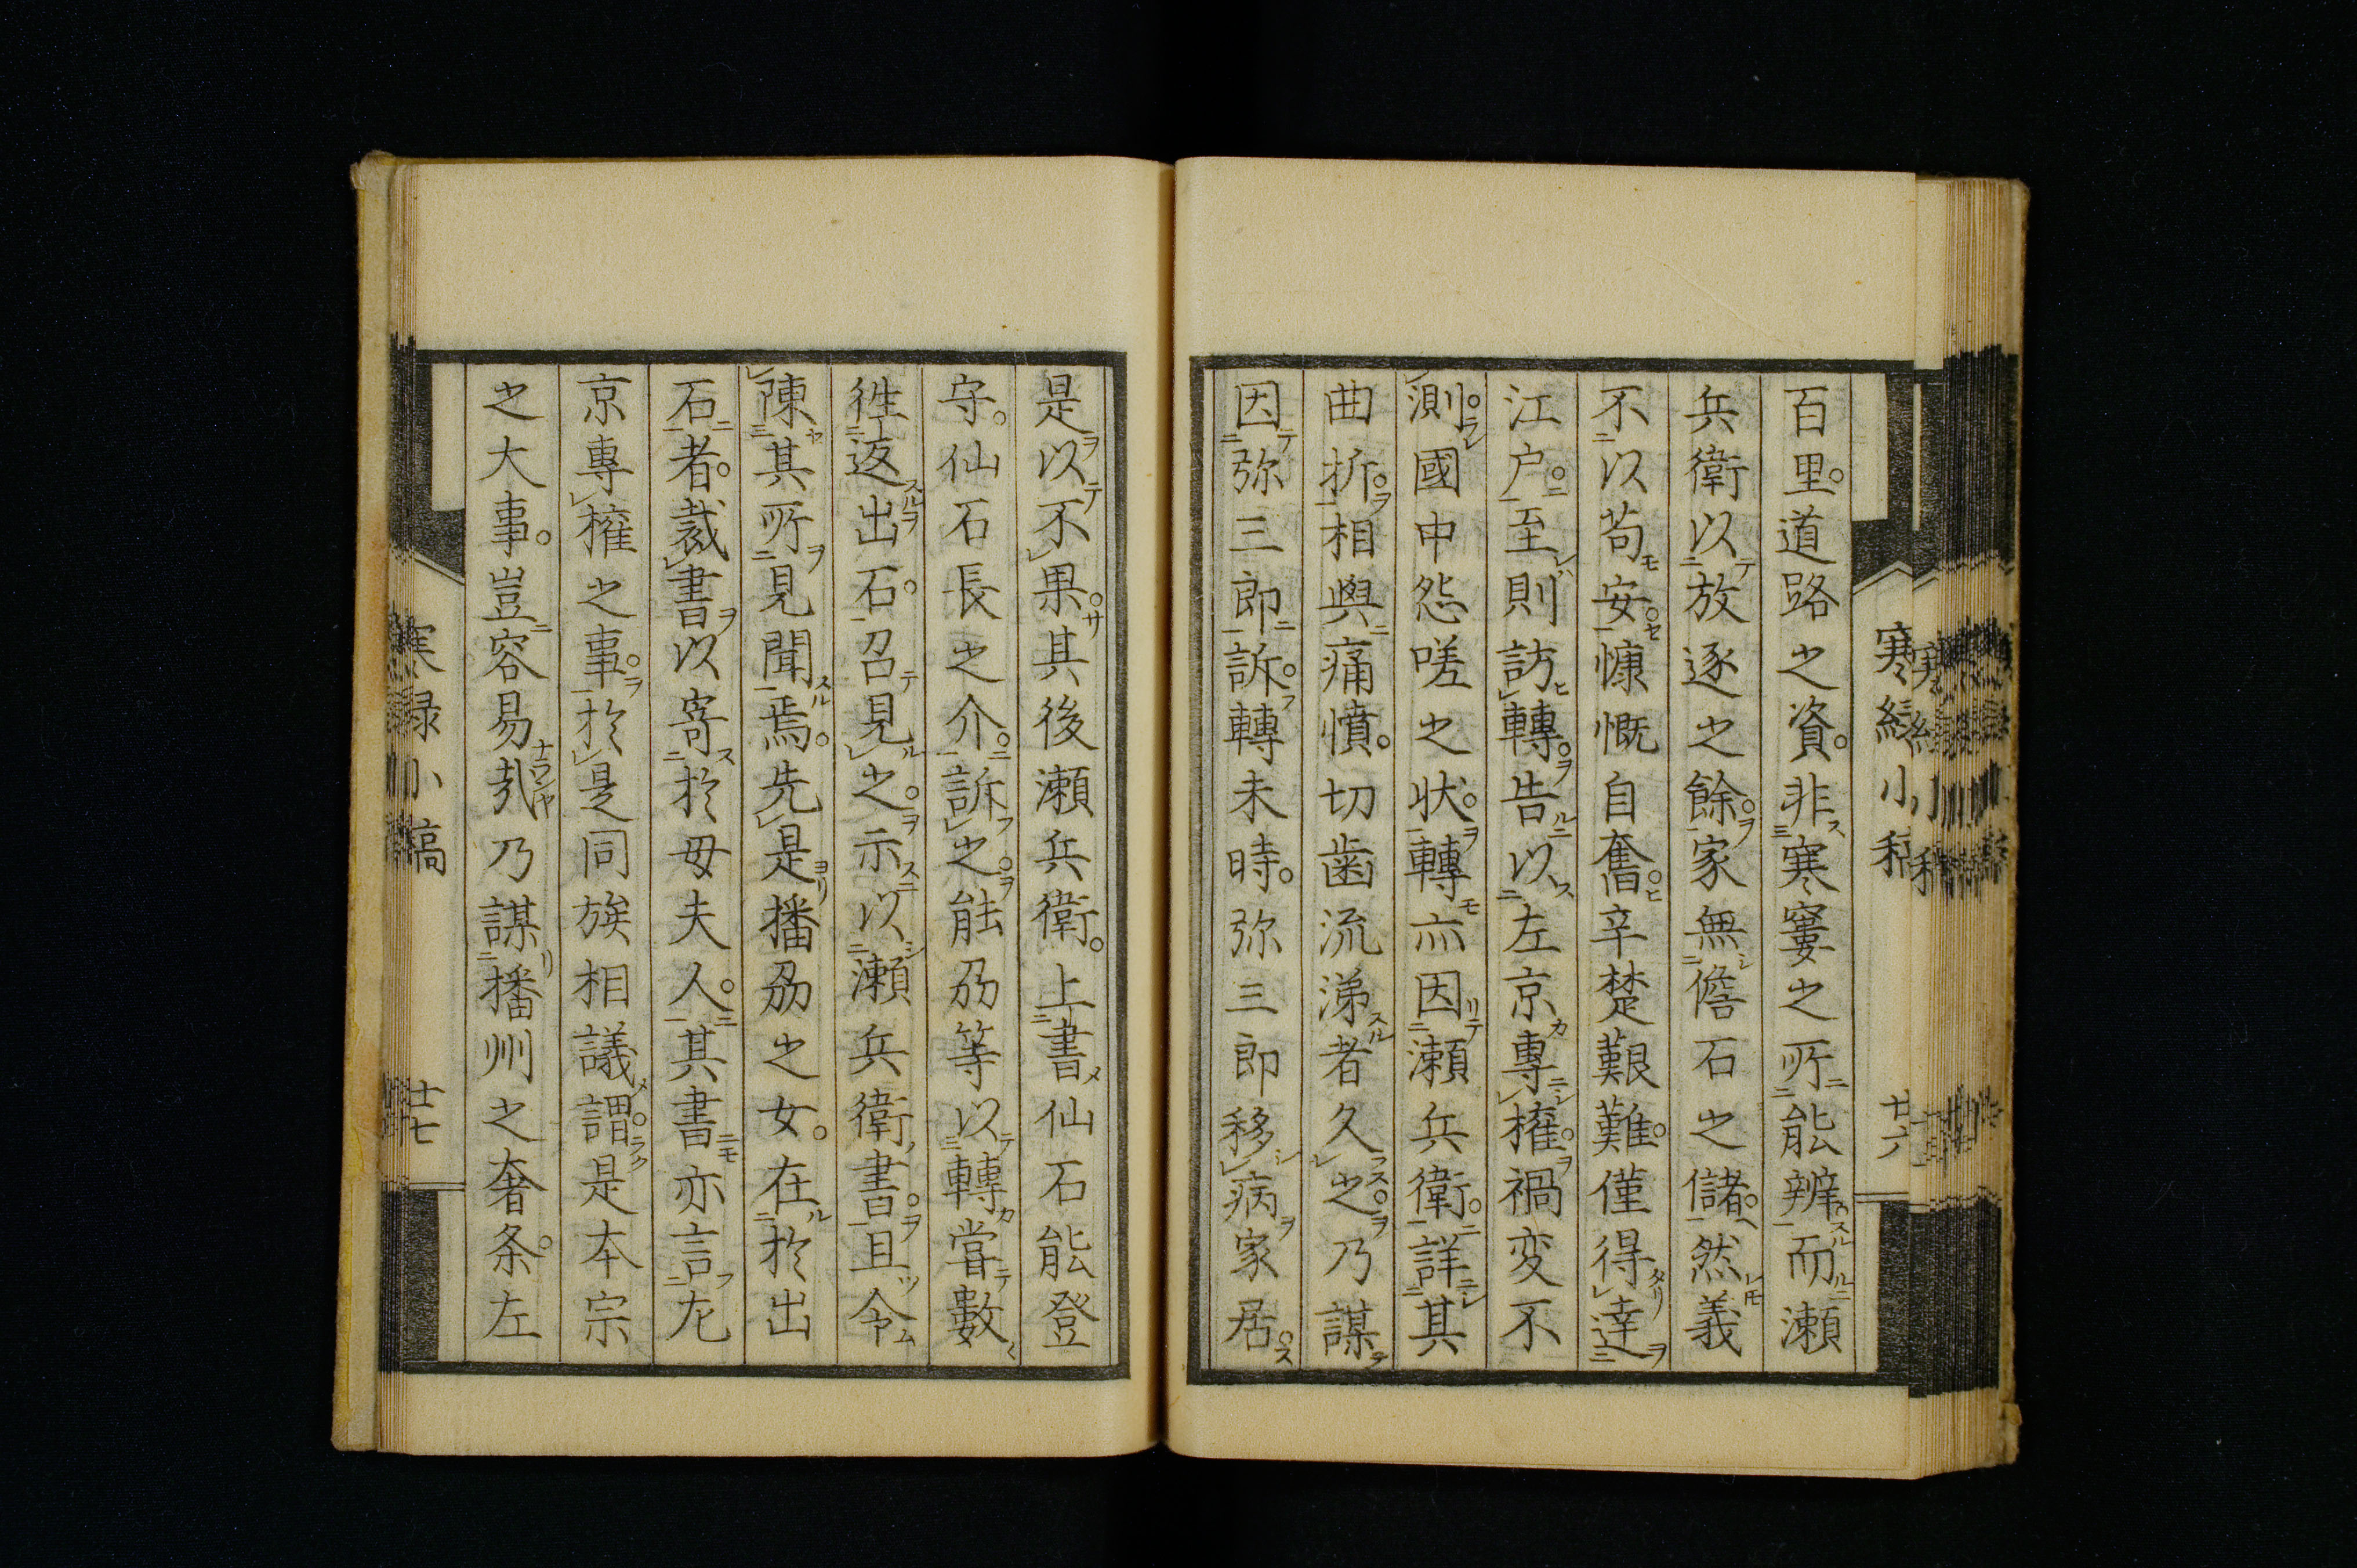 百里。道路之資。非寒窶之所能辨而瀬
兵衛以放逐之餘。家無儋石之儲。然義
不以苟安。慷慨自奮。辛楚艱難。僅得達
江戸。至則訪轉。告以左京專權。禍変不
測。國中怨嗟之状。轉亦因瀬兵衛。詳其
曲折。相與痛憤。切歯流涕者久之。乃謀
因弥三郎訴。轉未時。弥三郎移病家居。
是以不果。其後瀬兵衛。上書仙石能登
守。仙石長之介。訴之。能刕等以轉嘗數
徃返出石。召見之。示以瀬兵衛書。且令
陳其所見聞焉。先是播刕之女。在於出
石者。裁書以寄於毋夫人。其書亦言左
京專權之事。於是同族相議謂。是本宗
之大事。豈容易㢤乃謀播州之奢条。左
寒緑小稿
十七